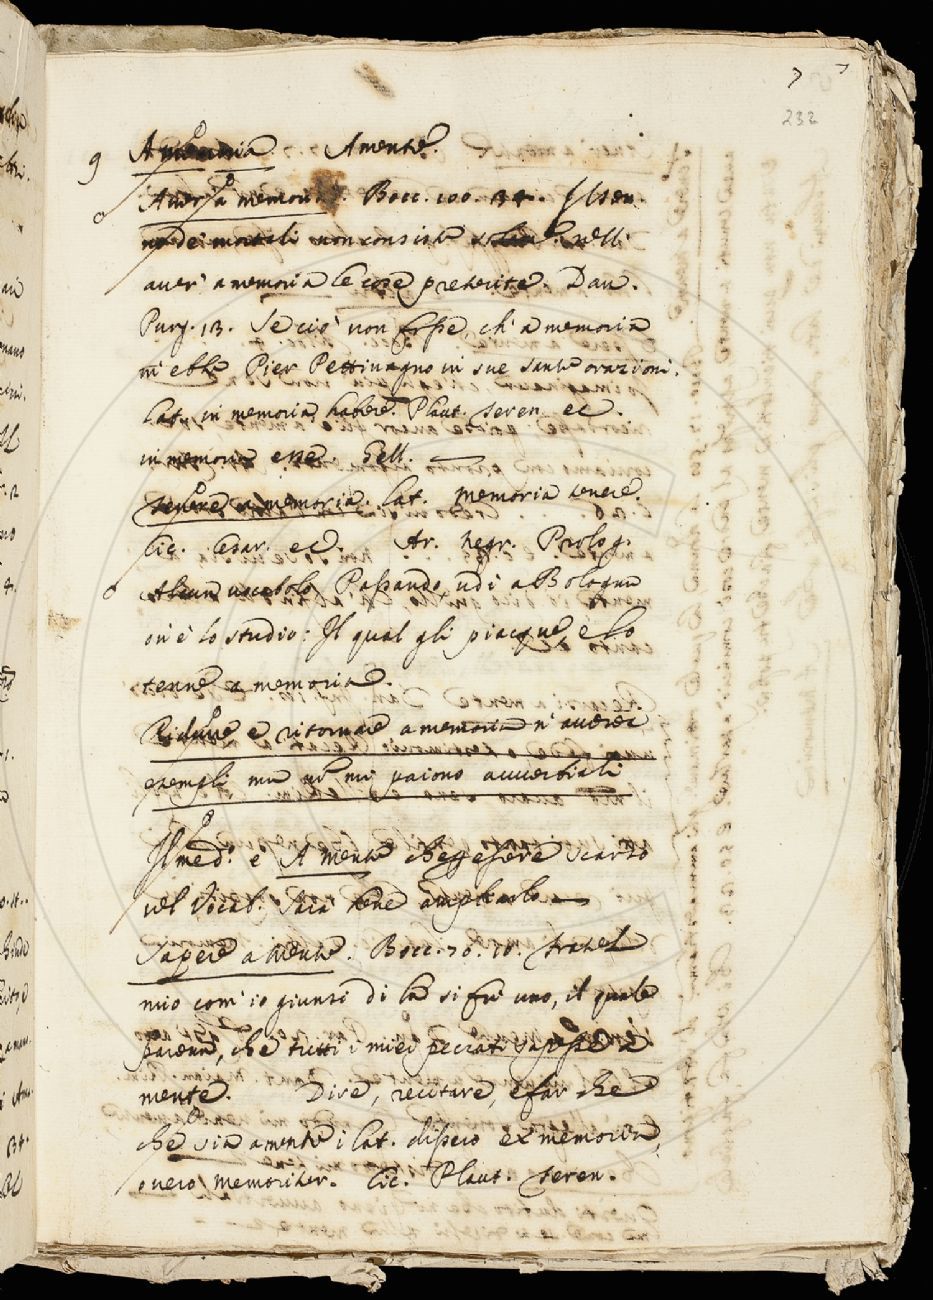 7 7
232
9 A memoria Amente.
Aver' a memoria. Bocc. 100. 34. Il sen-
no de' mortali non consiste solam. nell'
aver' a memoria le cose preterite. Dan.
Purg. 13. Se ciò non fosse ch' a memoria
m' ebbe Pier Pettinagno in sue sante orazioni.
Lat. in memoria habere. Plaut. Teren. ec.
in memoria esse Gell.
Tenere a memoria. Lat. memoria tenere.
Cic. Cesar. ec. Ar. Negr. Prolog.
Alcun vocabolo Passando, udì a Bologna
ov' è lo studio: Il qual gli piacque, e lo
tenne a memoria.
Ridurre e ritornare a memoria n' averei
esempli ma non mi paiono avverbiali
Il med.º e A mente ch'essere scarso
nel Vocab. sarà bene ampliarlo
Sapere a mente. Bocc. 70. 10. Fratel
mio com' io giunsi di là si fu uno, il quale
pareva, che tutti i miei peccati sapesse à
mente. Dire, recitare, e far che
che sia a mente i Lat. dissero ex memoria,
overo memoriter. Cic. Plaut. Teren.